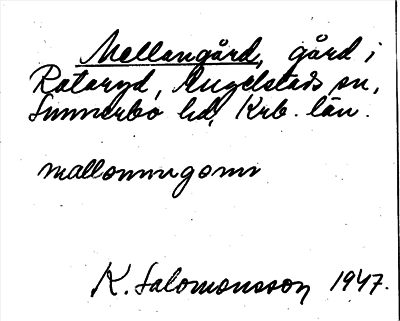 Mellangård, gård i
Rataryd, Angelstads sn,
Sunnerbo hd, Krb. län.
mallommgomr
K. Salomonsson 1947.